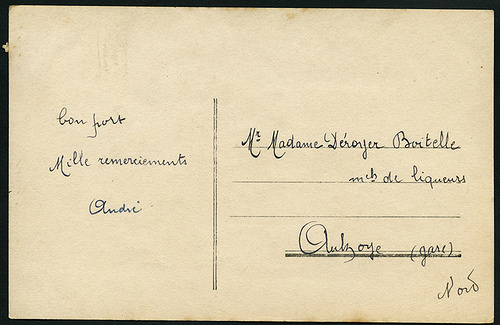 bon port
Mille remerciements
André
Mr Madame Déroyer Boitelle
mch de liqueurs
Aulnoye (gare)
Nord